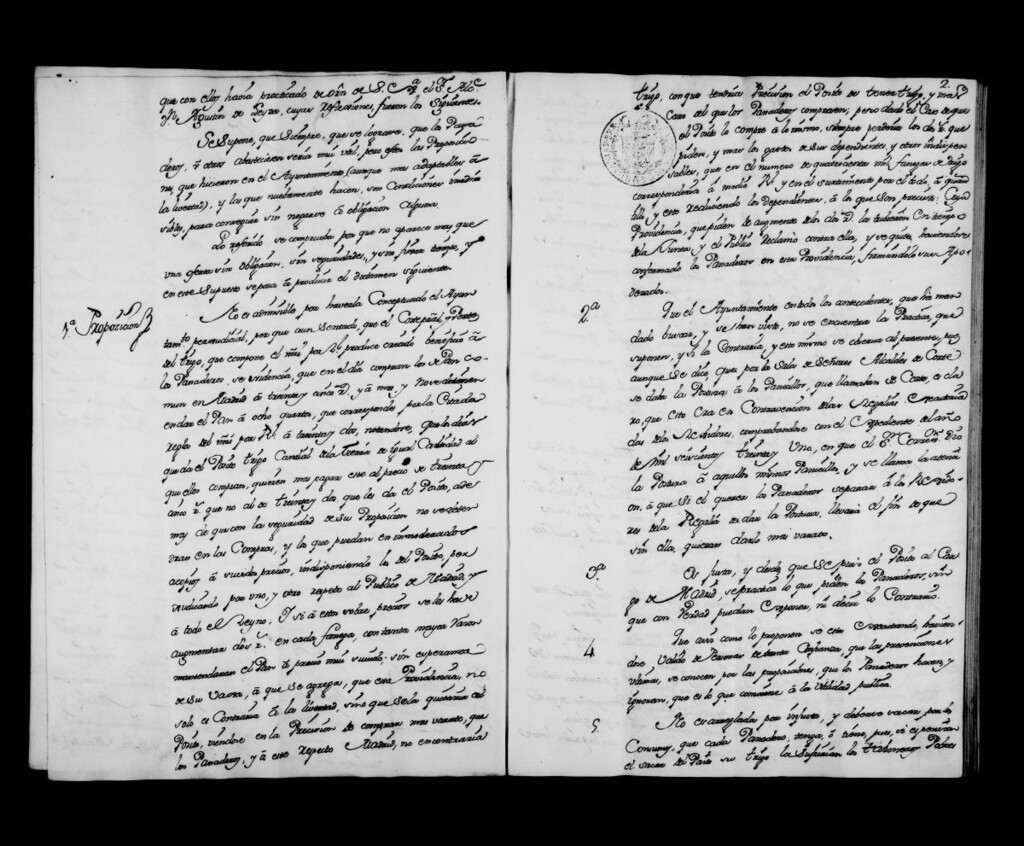 que con ellos havia practicado de ôrn de S. C. el Sr. Alc.
Dn. Agustin de Leyza, cuyas reflexiones, fueron las Siguientes.
Se Supone, que Siempre, que se lograve, que los Pana
deros, û otros abasteciesen seria mui util, pero estas las Proposicio
nes, que hicieron en el Ayuntamiento (aunque mas adaptables â
la libertad), y las que nuebamente hacen, son Condiciones
para conseguir sin negarse â obligacion alguna.
Lo referido se comprueba por que no aparece mas que
una oferta sin Obligacion, sin seguridades, y sin fixar tiempo, y
en este Supuesto se para â producir el dictamen siguiente.
1.ª Proposicion
No es admisible por haverla Conceptuado el Ayun
tam.to perxudicial, por que aun sentado, que el Costo y Porte
del trigo, que compone el por produce crecido beneficio â
los Panaderos, se evidencia, que en el dia compran los de Pan co
mun en Madrid â treinta y cinco rs., y â mas, y No se
en dar el Pan â ocho quartos, que corresponde por la Citada
regla del por â treinta y dos, notandose, que los dias
que da el Posito trigo Candial de la Tercia de igual Calidad al
que ellos compran, quieren mas pagar este al precio de treinta y
cinco rs. que no al de treinta y dos, que les da el Posito, ade
mas de que con la seguridad de su Proposicion no se deten
dran en las Compras, y lo que puedan en inmoderados
acopios â subidos precios, indisponiendo los del Posito, per
iudicando por uno, y otro respeto al Publico de Madrid, y
â todo el Reyno. Y si â estos sobre precios se les hace
augmentar dos rs. en cada fanega, con tanta mayor razon
mantendran el Pan â precio mui subido: sin esperanza
de su vaxa, â que se agrega, que esta Providencia, no
solo es Contraria â la libertad, sino que sela quitaria al
Posito, viendose en la Precision de comprar mas varato, que
los Panaderos, y â este respecto Madrid, no encontraria
2.
trigo, con que tendria Precision el Posito de tener trigo, y mas
Caro del que los Panaderos comprasen, pero dado el Caso de que
el Posito lo compre â lo mismo, siempre perderia los dos rs. que
piden, y mas los gastos de sus dependientes, y otros indispen
sables, que en el numero de quatrocientas mil fanegas de trigo
corresponderia â medio Rl. y en el surtimiento por el todo, â quar
tillo y esto reduciendo los Dependientes, â los que son precisos: Cuya
Providencia, que piden de augmento de los dos rs. la tubieron en tiempo
de la Junta, y el Publico reclamó contra ella, y se quitó, haviendose
conformado los Panaderos en esta Providencia, firmandolo sus Apo
derados.
2.ª
Que el Ayuntamiento en todos los antecedentes, que ha man
dado buscar, y se han visto, no se encuentra la Practica, que
suponen, y si la Contraria, y esto mismo se observa al presente, pues
aunque Se dice que por la Sala de Señores Alcaldes de Corte
se daba la Postura â los Panecillos, que llamaban de Corte, es cla
ro, que esto Era en Contravencion de las Regalias executoria
das de los Rexidores, comprobandose con el Expediente del año
de mil seiscientos treinta y Uno, en que el Sr. Correxr. dio
la Postura â aquellos mismos Panecillos, y se llama la atenci
on, â que Si el querer los Panaderos separar â los Rexido
res de la Regalia de dar la Postura, llevará el fin de que
sin ella, quieran darlo mas varato.
3.ª
Es Justo, y desde que Se puso el Posito al Car
go de Madrid, se practica lo que piden los Panaderos, sin
que con Verdad puedan Exponer, ni decir lo Contrario.
4
Que assi como lo proponen se esta Executando, havien
dose valido de Personas de tanta Confianza, que las prevenciones
ultimas, se conocen por las proposiciones, que los Panaderos hacen, y
ignoran, que es lo que combiene â la Utilidad publica.
5.
No es arreglada por injusta, y deberse vacar por lo
Comun, que cada Panadero, tenga, ô tome, pues, si
el sacar del Posito su trigo la Suplirian los Trabaxos Pobres